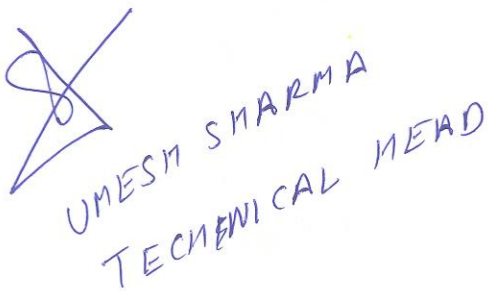 UMESH SHARMA
TECHNICAL HEAD